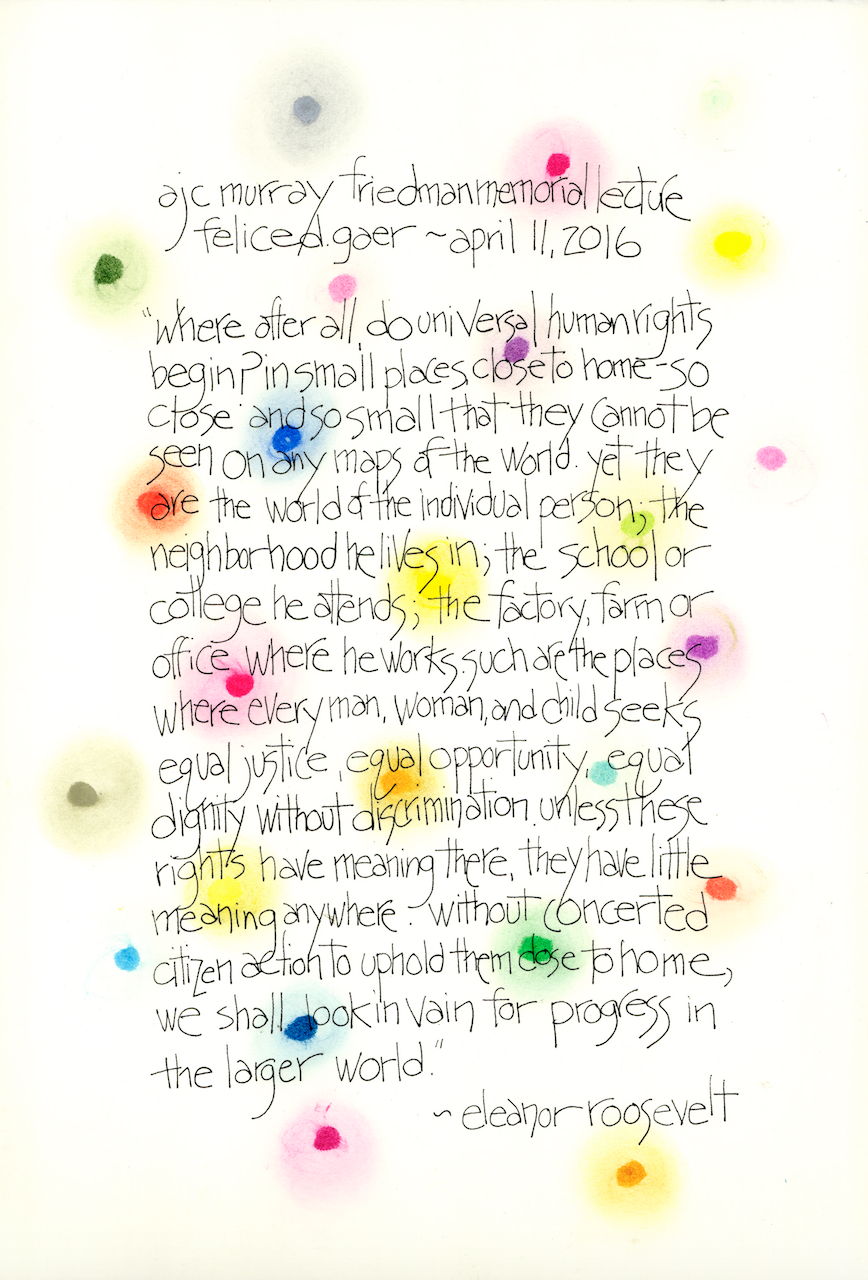 ajc murray friedman memorial lecture
felice d. gaer ~ april 11, 2016
"where after all, do universal human rights
begin? in small places, close to home - so
close and so small that they cannot be
seen on any maps of the world. yet they
are the world of the individual person; the
neighborhood he lives in; the school or
college he attends; the factory, farm or
office where he works. such are the places
where every man, woman, and child seeks
equal justice, equal opportunity, equal
dignity without discrimination. unless these
rights have meaning there, they have little
meaning anywhere. without concerted
citizen action to uphold them close to home,
we shall look in vain for progress in
the larger world."
~ eleanor roosevelt